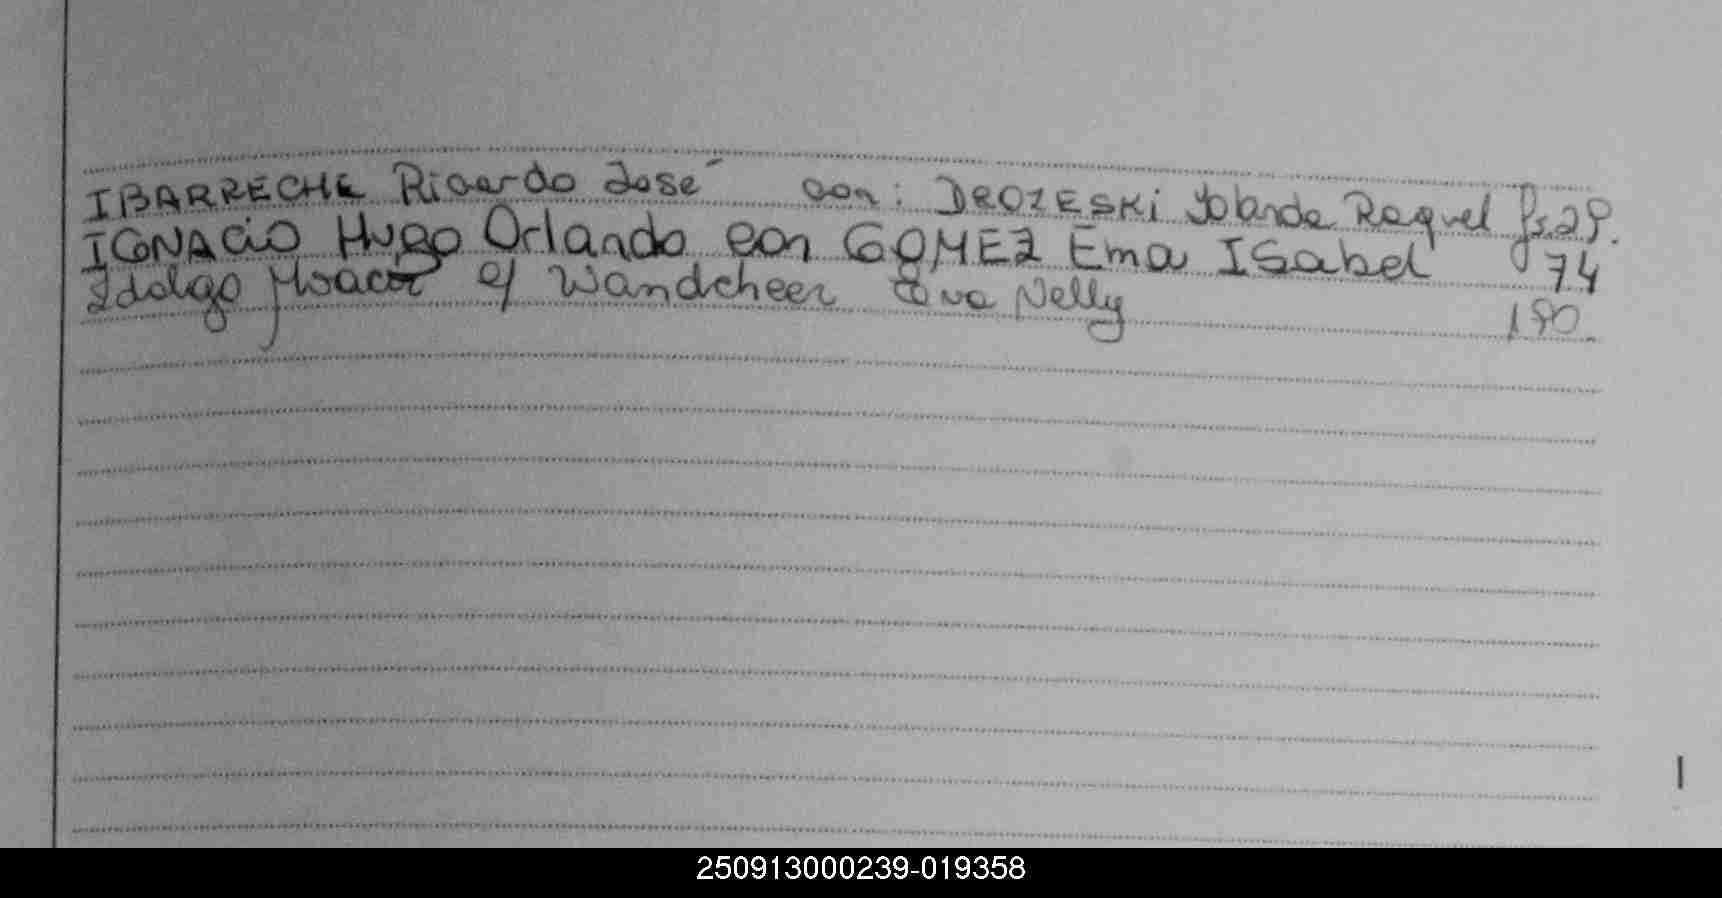 IBARRECHE Ricardo José con: DROZESKi Yolanda Raquel fs.29.
IGNACiO Hugo Orlando con GOMEZ Ema ISabel 74
Idalgo c/ Wandcheer Eva Nelly 190.
I
250913000239-019358